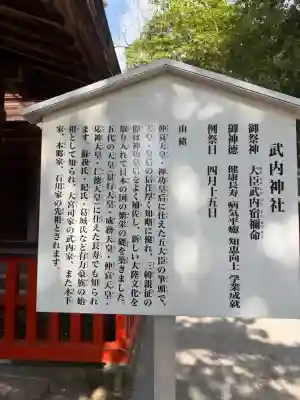 武内神社
御祭神　大臣武内宿禰命
御神徳　健康長寿　病気平癒　知恵向上　学業成就
例祭日　四月十五日
由緒
仲哀天皇・神功皇后に仕えた五大臣の筆頭で、
天皇・皇后の信任厚く知略に優れ、三韓親征の
際は神功皇后をよく補佐し、新しい大陸文化を
取り入れて日本の国の繁栄の礎を築きました。
五代の天皇（景行天皇・成務天皇・仲哀天皇・
応神天皇・仁徳天皇）に仕えた長寿でも知られ
ます。蘇我氏・紀氏・葛城氏など有力豪族の始
祖として知られ、大宮司家の武内家、また木下
家、本郷家、石川家の先祖とされます。